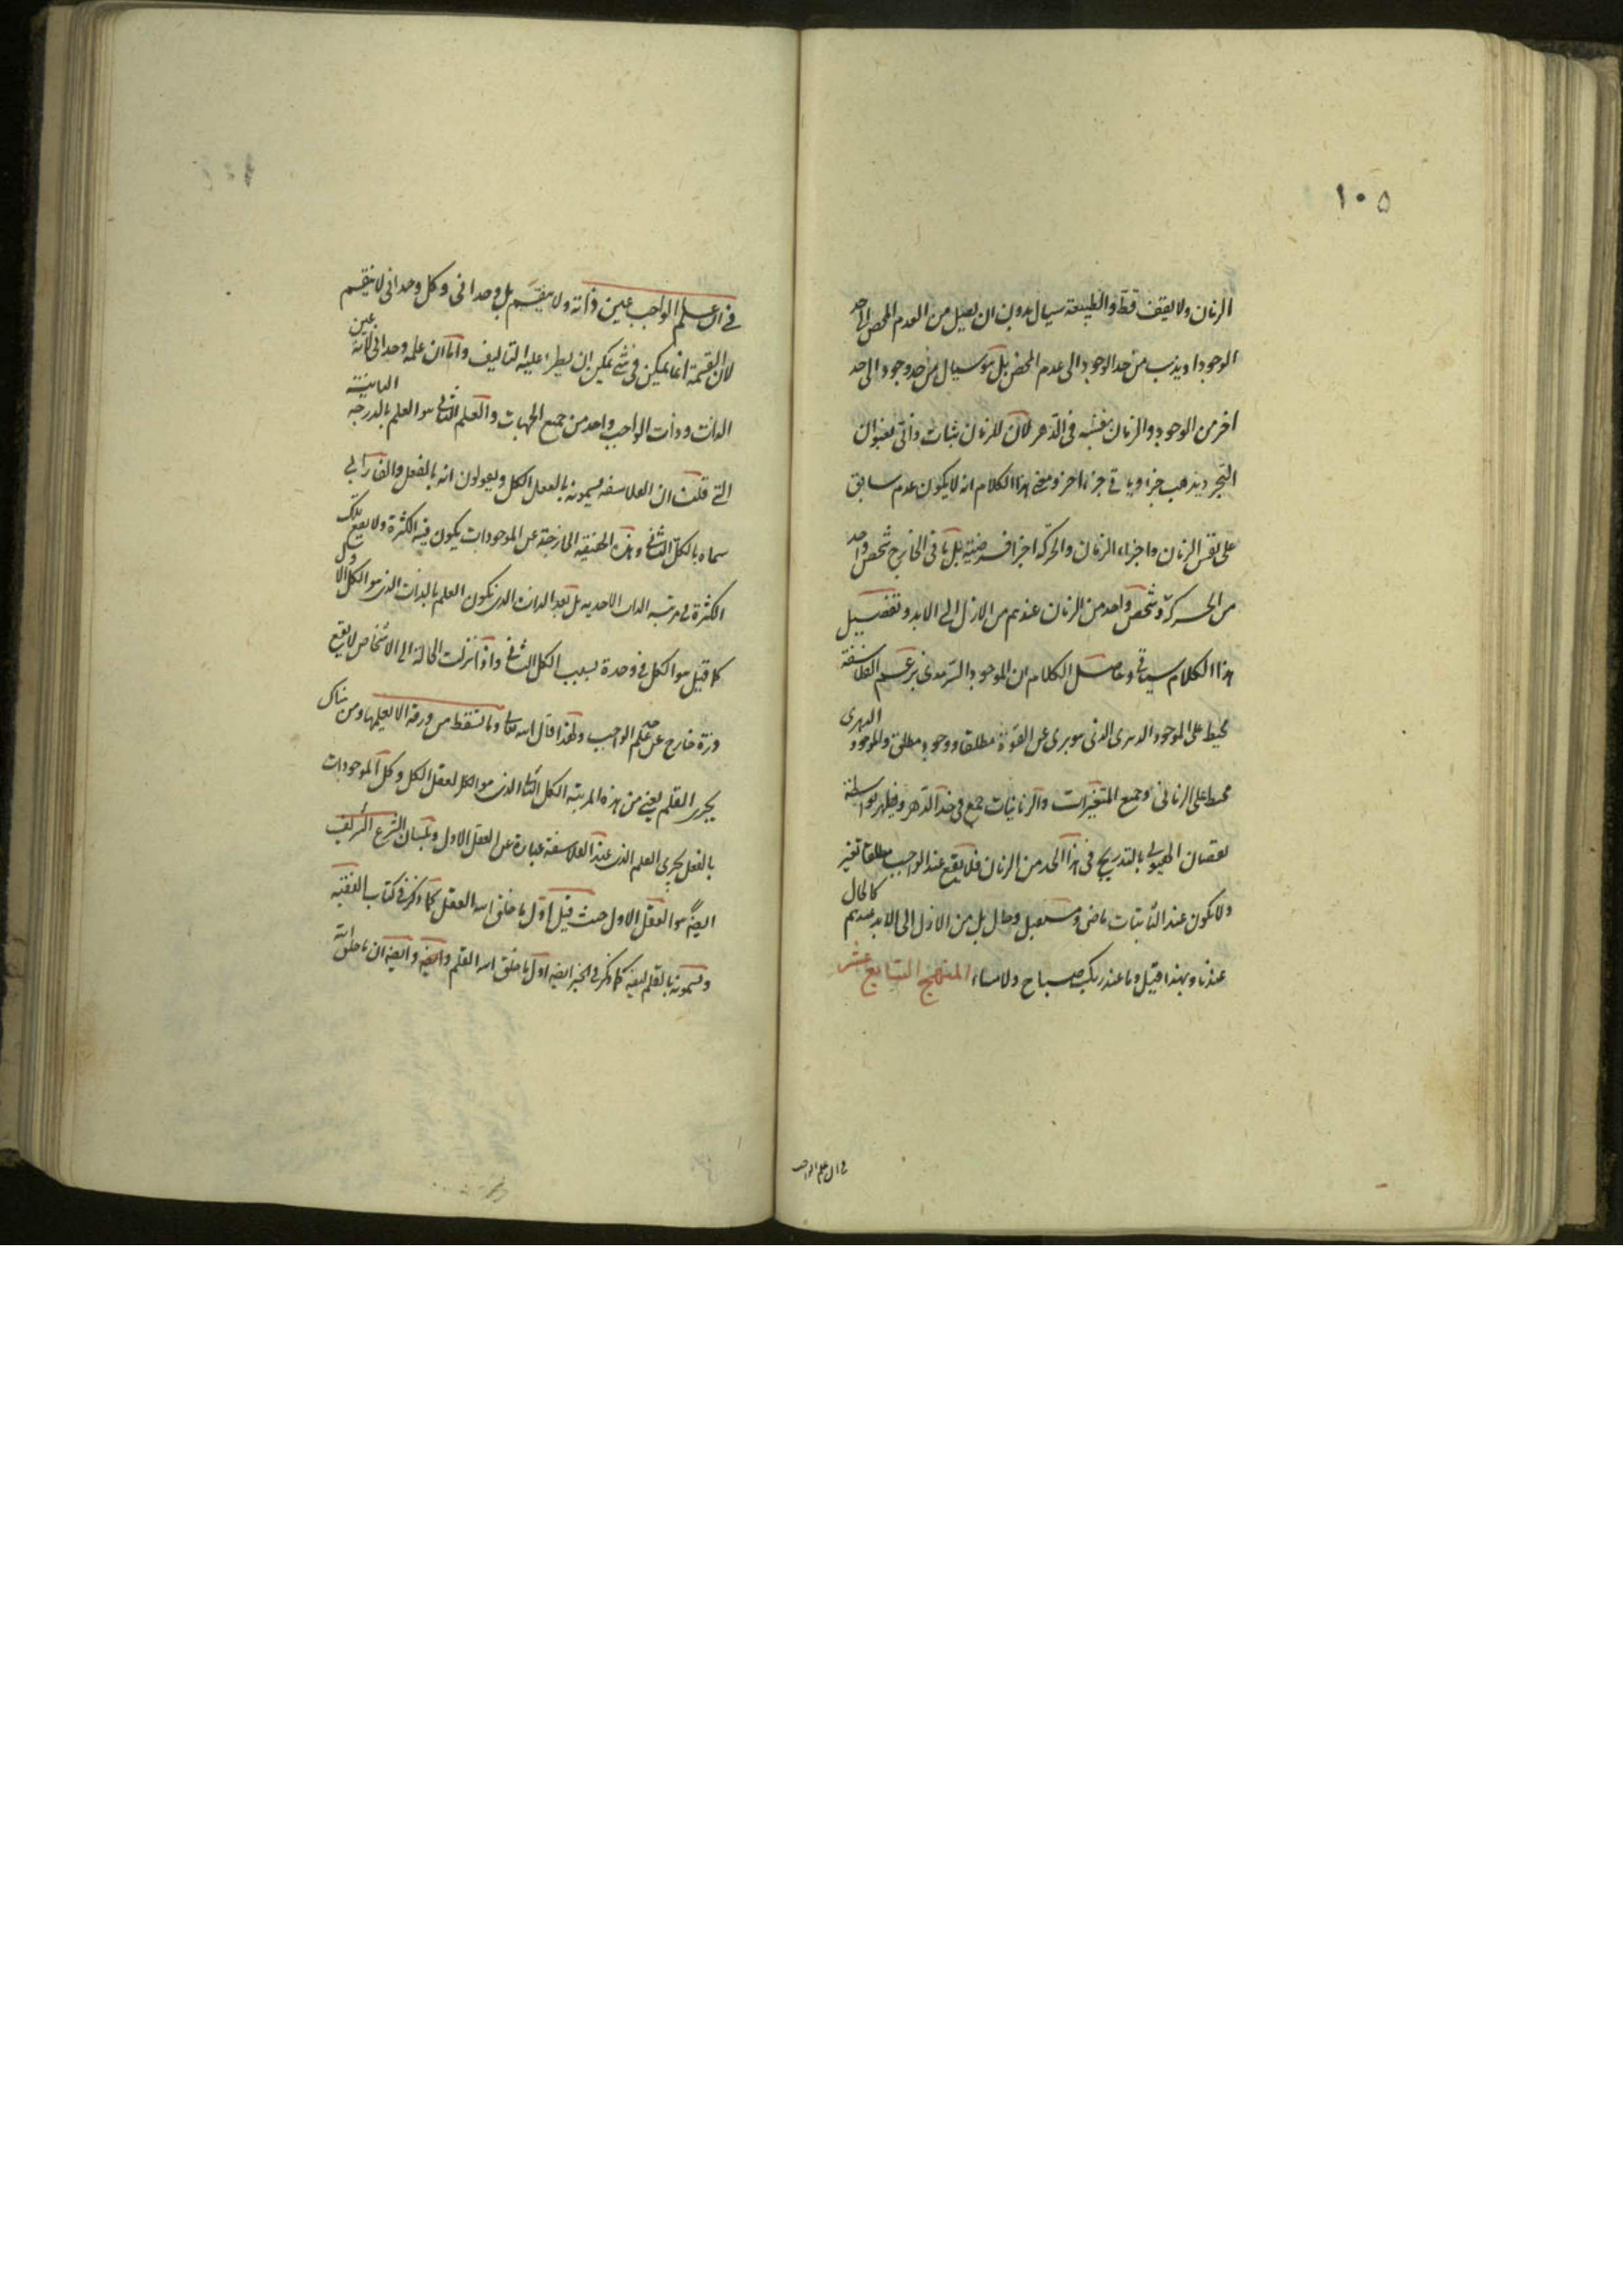 ١٠٥
الزمان ولا يقف قط والطبيعة سيال بدون ان يصل من العدم المحض الى حد
الوجود او يذهب من حد الوجود الى عدم المحض بل هو سيال من حد وجود الى حد
اخر من الوجود والزمان بنفسه فى الدهر لان للزمان ثبات ذاتى بعنوان
التجرد يذهب جزء وياتي جزء اخر ومعنى هذا الكلام انه لا يكون عدم سابق
على نفس الزمان واجزاء الزمان والحركة اجزا فرضية بل ما فى الخارج شخص واحد
من الحركة وشخص واحد من الزمان عندهم من الازل الى الابد وتفصيل
هذا الكلام سياتى وحاصل الكلام ان الموجود السرمدى بزعم الفلاسفة
محيط على الموجود الدهرى الذى هو برى عن القوة مطلقا ووجود مطلق والموجود الدهرى
محيط على الزمانى وجميع المتغيرات والزمانيات جمع فى حد الدهر ويظهر بواسطة
نقصان الهيولى بالتدريج فى هذا الحد من الزمان فلا يقع عند الواجب مطلقا تغير
ولا يكون عند الثابتات ماضى ومستقبل وحال بل من الازل الى الابد عندهم كالحال
عندنا وبهذا قيل وما عند ربك صباح ولا مساء المنهج السابع عشر
فى ان علم الواجب
فى ان علم الواجب عين ذاته ولا ينقسم بل وحدانى وكل وحدانى لا ينقسم
لان القسمة انما يمكن فى شئ يمكن ان يطرا عليه التاليف واما ان علمه وحدانى لانه عين
الذات وذات الواجب واحد من جميع الجهات والعلم الثانى هو العلم بالدرجة الثانية
التي قلت ان الفلاسفه يسمونه بالعقل الكل ويقولون انه بالفعل والفارابى
سماه بالكل الثانى وهذه الحقيقه الخارجة عن الموجودات يكون فيه الكثرة ولا يقع تلك
الكثرة فى مرتبه الذات الاحديه بل بعد الذات الذى يكون العلم بالذات الذى هو الكل الاول
كما قيل هو الكل فى وحدة بسبب الكل الثانى واذا نزلت الحالة الى الاشخاص لا يقع
ذرة خارج عن علم الواجب ولهذا قال الله تعالى وما تسقط من ورقة الا يعلمها ومن هناك
يجرى القلم يعنى من هذه المرتبه الكل الثانى الذى هو الكل لعقل الكل وكل الموجودات
بالفعل يجرى العلم الذى عند الفلاسفة عبارة عن العقل الاول وبلسان الشرع الشريف
ايضا هو العقل الاول حيث قيل اول ما خلق الله العقل كما ذكر فى كتاب الفقيه
ويسمونه بالقلم ايضا كما ذكر فى الخبر ايضا اول ما خلق الله القلم وايضا وايضا ان ما خلق الله